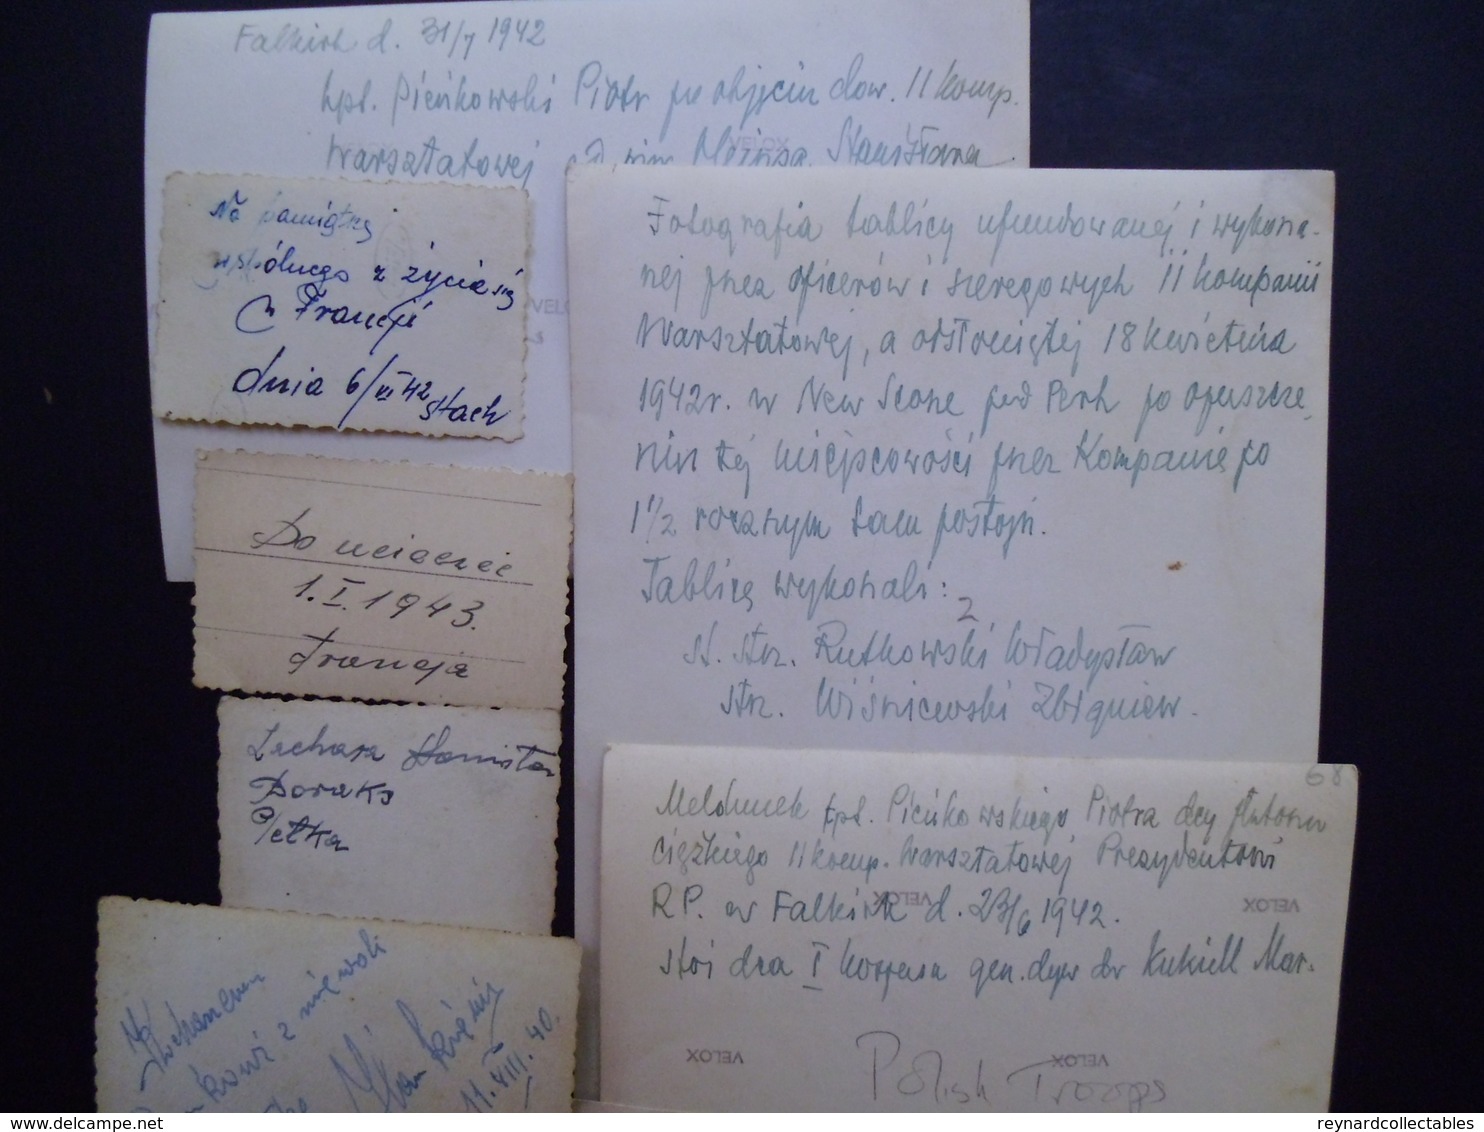 Falkirk d. 31/7 1942
kpt. Pieńkowski Piotr po objęciu dow. 11 komp.
Warsztatowej
VELOX
Na pamiątkę
wspólnego z życia się
Francji
dnia 6/III 42
Stach
VELOX
Do uciechie
1. I. 1943.
Francja
Lachara Stanisław
Doraks
Petka
Kochanemu
z niewoli
11. VIII. 40.
Fotografia tablicy ufundowanej i wykona-
nej przez oficerów i szeregowych 11 kompanii
Warsztatowej, a odsłoniętej 18 kwietnia
1942r. w New Scone pod Perth po opuszcze-
niu tej miejscowości przez Kompanię po
1 1/2 rocznym tam postoju.
Tablicę wykonali:
2
st. strz. Rutkowski Władysław
strz. Wiśniewski Zbigniew.
68
Meldunek kpt. Pieńkowskiego Piotra dcy plutonu
ciężkiego 11 komp. Warsztatowej Prezydentowi
R.P. w Falkirk d. 23/6 1942.
VELOX
VELOX
stoi dca I Korpusu gen. dyw. dr Kukiell Mar-
VELOX
VELOX
Polish Troops
reynardcollectables